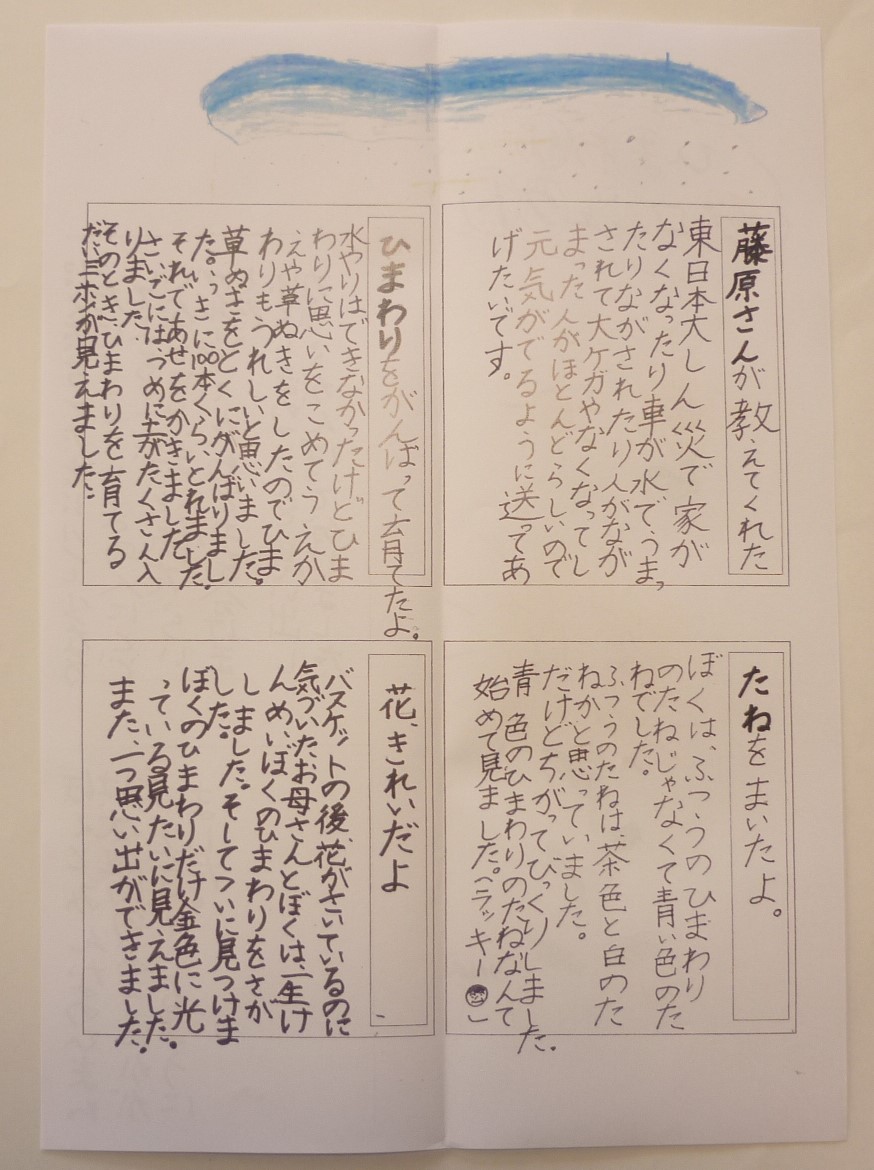 藤原さんが教えてくれた
東日本大しん災で家が
なくなったり車が水でうまっ
たりながされたり人がなが
されて大ケガやなくなってし
まった人がほとんどらしいので
元気がでるように送ってあ
げたいです。
たねをまいたよ。
ぼくは、ふつうのひまわり
のたねじゃなくて青い色のた
ねでした。
ふつうのたねは、茶色と白のた
ねかと思っていました。
だけどちがってびっくりしました。
青色のひまわりのたねなんて
始めて見ました。(ラッキー)
ひまわりをがんばって育てたよ。
水やりはできなかったけどひま
わりに思いをこめてうえか
えや草ぬきをしたのでひま
わりもうれしいと思いました。
草ぬきをとくにがんばりまし
た。いっきに100本くらいとれました。
それであせをかきました。
さいごにはつめに土がたくさん入
りました。
そのときひまわりを育てる
が見えました。
花、きれいだよ
バスケットの後、花がさいているのに
気づいたお母さんとぼくは、一生け
んめいぼくのひまわりをさが
しました。そしてついに見つけま
した。
ぼくのひまわりだけ金色に光
っている見たいに見えました。
また、一つ思い出ができました。